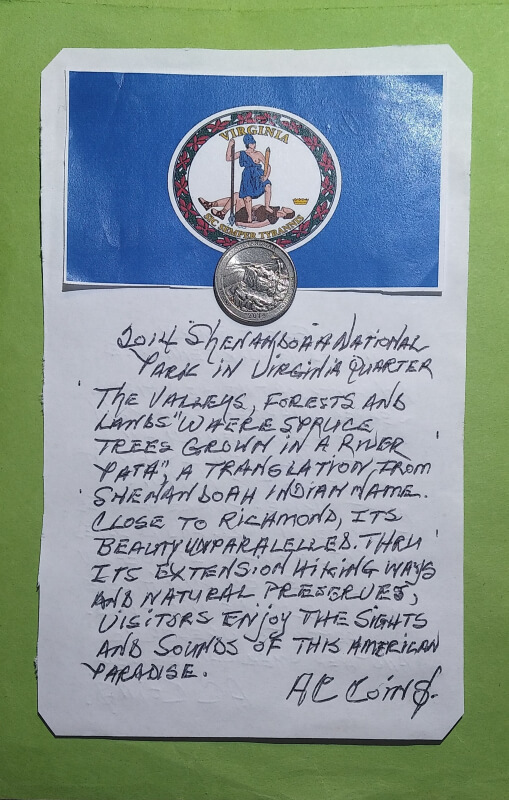 VIRGINIA
SIC SEMPER TYRANNIS
2014
2014 "SHENANDOAH NATIONAL
PARK IN VIRGINIA QUARTER
THE VALLEYS, FORESTS AND
LANDS "WHERE SPRUCE
TREES GROWN IN A RIVER
PATA", A TRANSLATION FROM
SHENANDOAH INDIAN NAME.
CLOSE TO RICHMOND, ITS
BEAUTY UNPARALELLED. THRU
ITS EXTENSION HIKING WAYS
AND NATURAL PRESERVES,
VISITORS ENJOY THE SIGHTS
AND SOUNDS OF THIS AMERICAN
PARADISE.
AC COIN$.